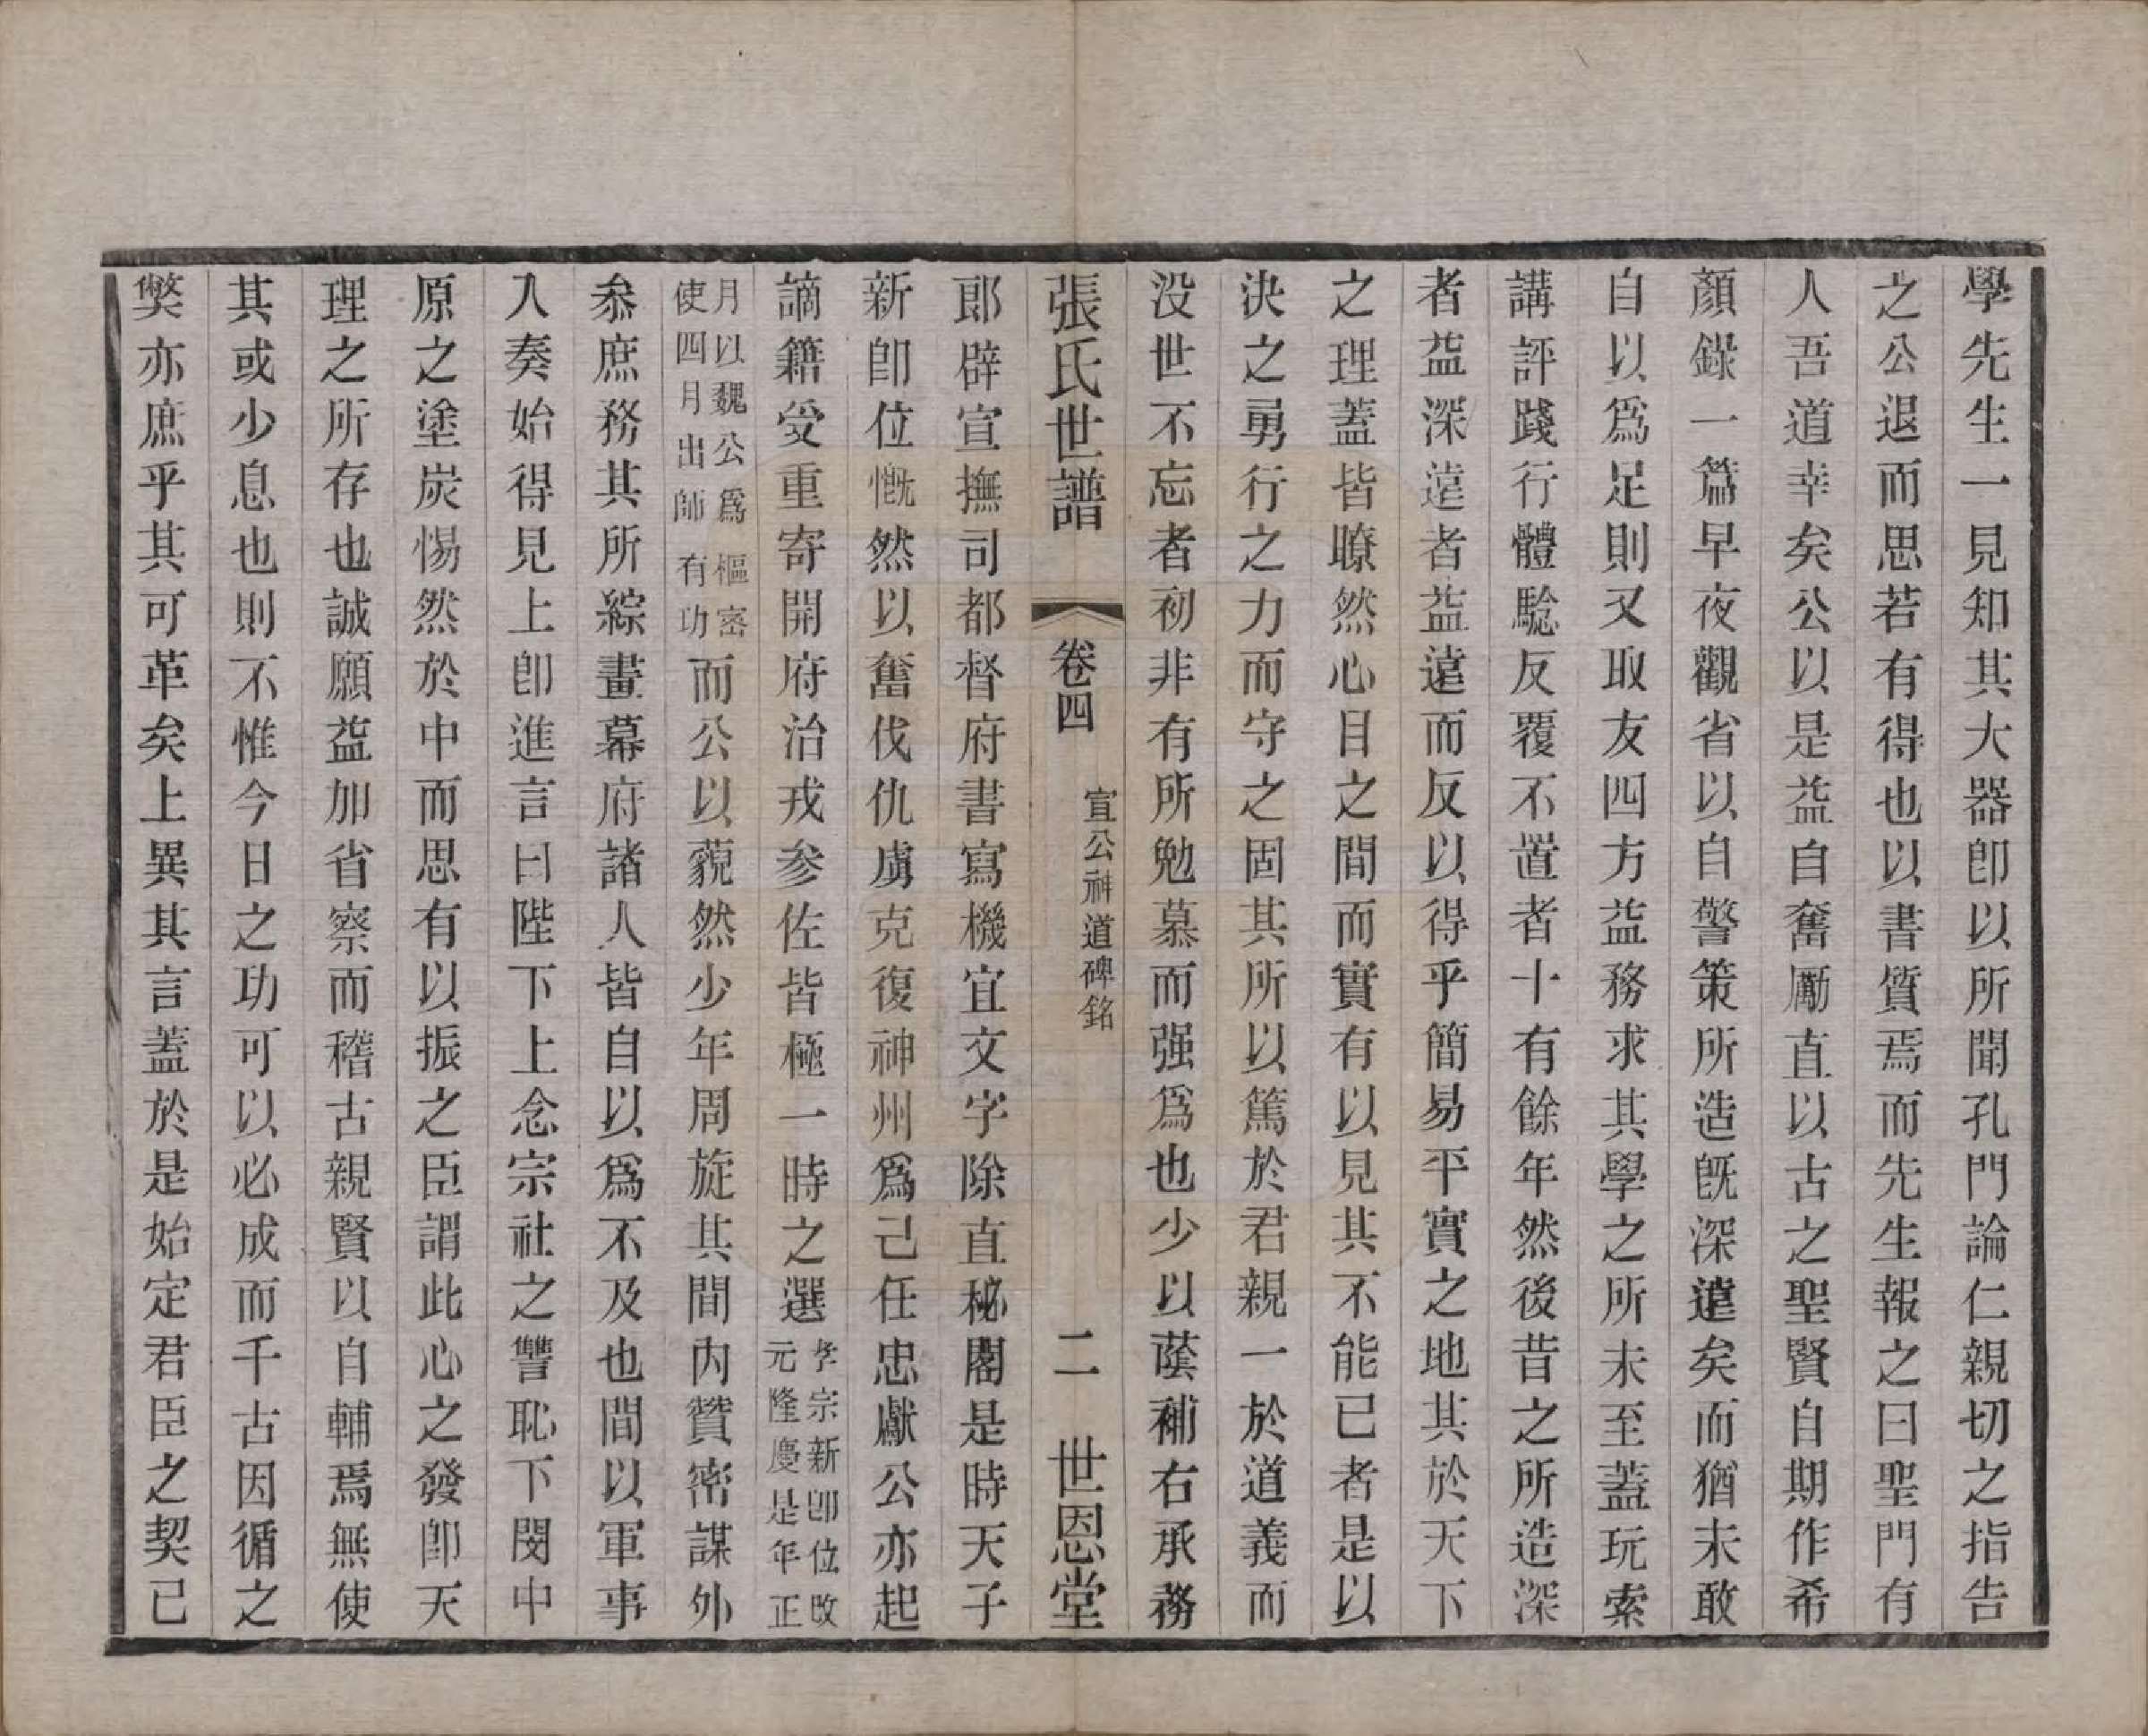 學先生一見知其大器卽以所聞孔門論仁親切之指告
之公退而思若有得也以書質焉而先生報之曰聖門有
人吾道幸矣公以是益自奮勵直以古之聖賢自期作希
顏錄一篇早夜觀省以自警策所造旣深遠矣而猶未敢
自以爲足則又取友四方益務求其學之所未至蓋玩索
講評踐行體驗反覆不置者十有餘年然後昔之所造深
者益深遠者益遠而反以得乎簡易平實之地其於天下
之理蓋皆瞭然心目之間而實有以見其不能已者是以
決之勇行之力而守之固其所以篤於君親一於道義而
没世不忘者初非有所勉慕而强爲也少以蔭補右承務
張氏世譜 卷四 宣公神道碑銘 二 世恩堂
郞辟宣撫司都督府書寫機宜文字除直秘閣是時天子
新卽位慨然以奮伐仇虜克復神州爲己任忠獻公亦起
謫籍受重寄開府治戎参佐皆極一時之選孝宗新卽位改元隆慶是年正
月以魏公爲樞密使四月出師有功而公以藐然少年周旋其間内贊密謀外
叅庶務其所綜畫幕府諸人皆自以爲不及也間以軍事
入奏始得見上卽進言曰陛下上念宗社之讐恥下閔中
原之塗炭惕然於中而思有以振之臣謂此心之發卽天
理之所存也誠願益加省察而稽古親賢以自輔焉無使
其或少息也則不惟今日之功可以必成而千古因循之
獘亦庶乎其可革矣上異其言蓋於是始定君臣之契已